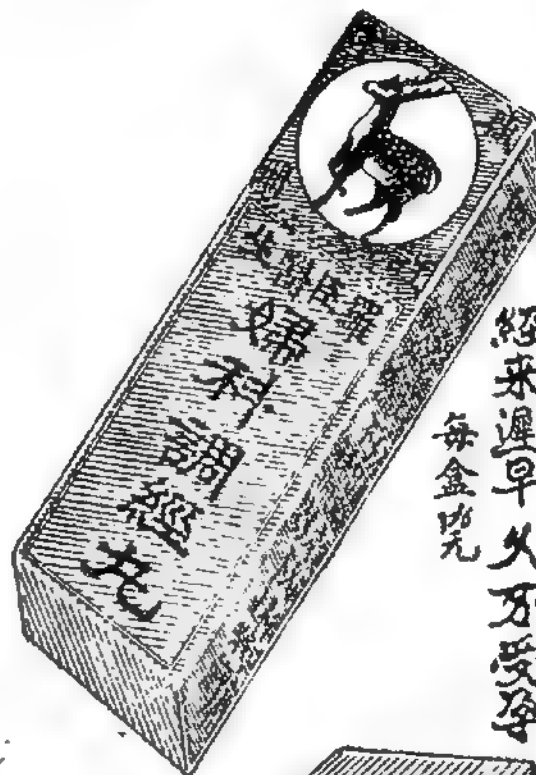 婦科調經丸
經来遲早久不受孕
每盒